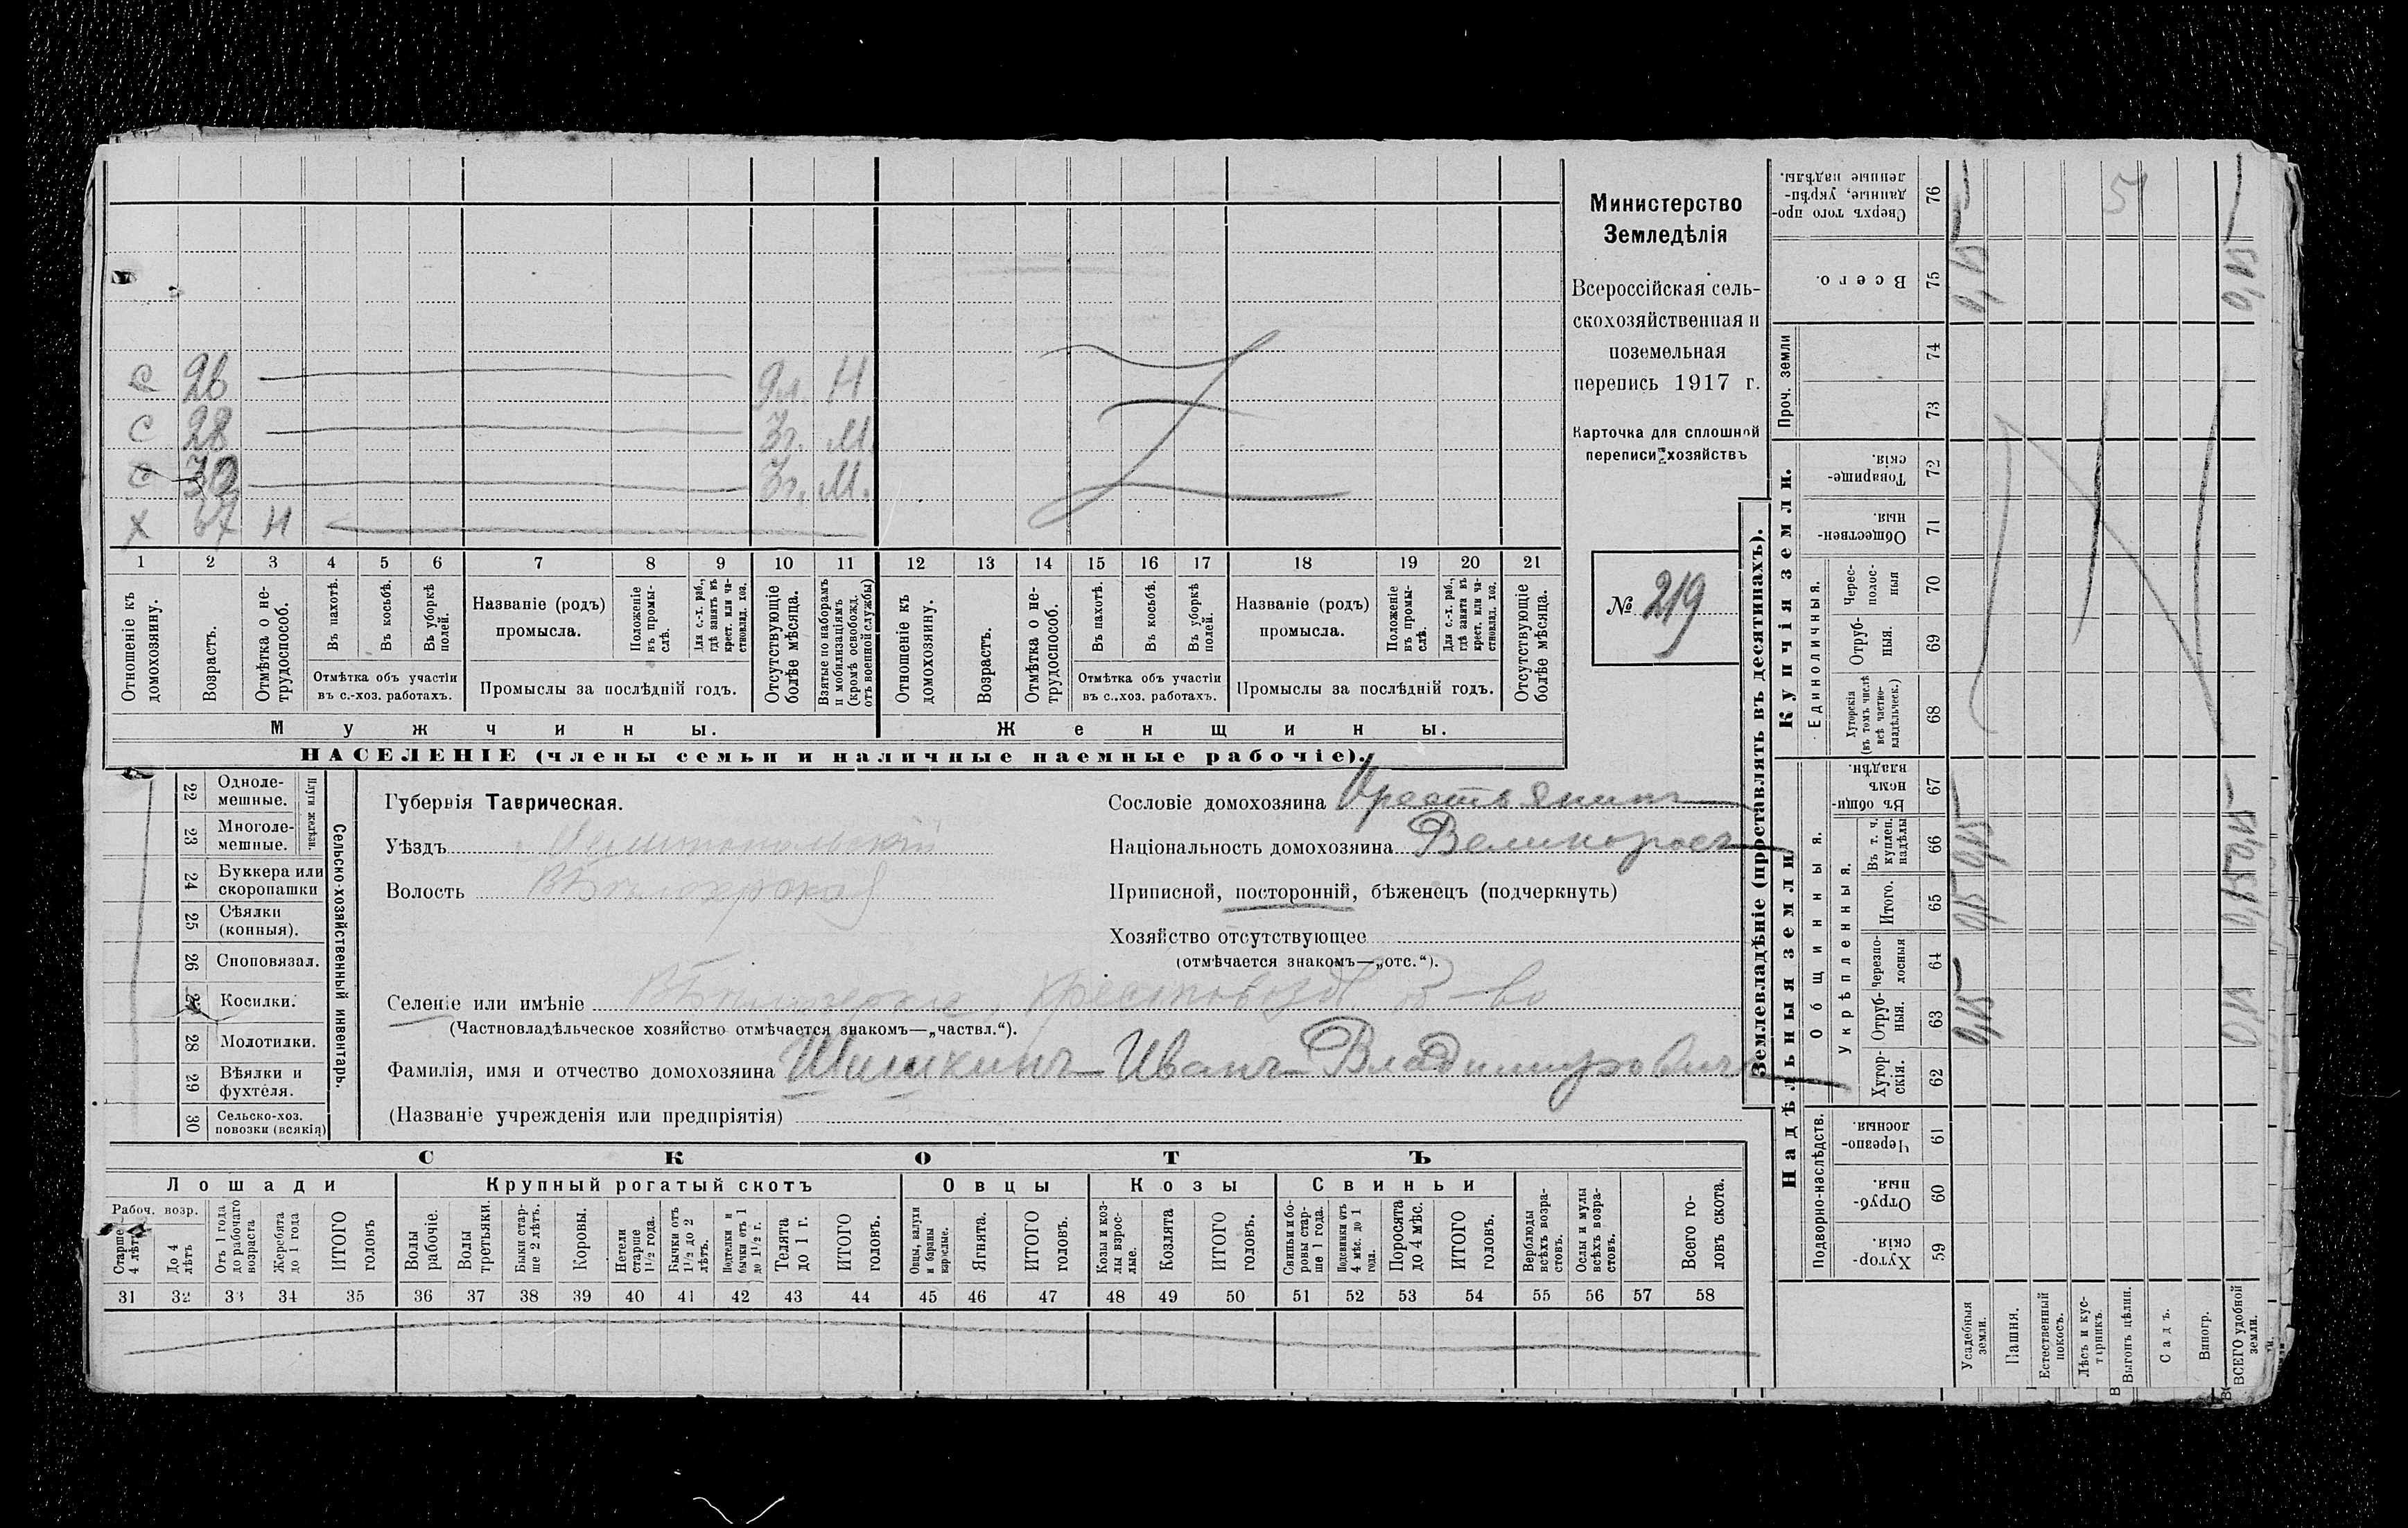 Министерство
Земледѣлія
Всероссійская сель-
скохозяйственная и
поземельная
перепись 1917 г.
Карточка для сплошной
переписи хозяйствъ
№ 219
с 26 9м. Н
с 28 3г. М.
с 30 3г. М.
х 67 Н
1 2 3 4 5 6 7 8 9 10 11 12 13 14 15 16 17 18 19 20 21
Отношеніе къ домохозяину.
Возрастъ.
Отмѣтка о не-трудоспособ.
Въ пахотѣ.
Въ косьбѣ.
Въ уборкѣ полей.
Отмѣтка объ участіи
въ с.-хоз. работахъ.
Названіе (родъ)
промысла.
Положеніе въ промы-слѣ.
Для с.-х. раб., гдѣ занятъ въ крест. или ча-стновлад. хоз.
Промыслы за послѣдній годъ.
Отсутствующіе болѣе мѣсяца.
Взятые по наборамъ и мобилизаціямъ (кромѣ освобожд. отъ военной службы)
Отношеніе къ домохозяину.
Возрастъ.
Отмѣтка о не-трудоспособ.
Въ пахотѣ.
Въ косьбѣ.
Въ уборкѣ полей.
Отмѣтка объ участіи
въ с.-хоз. работахъ.
Названіе (родъ)
промысла.
Положеніе въ промы-слѣ.
Для с.-х. раб., гдѣ занята въ крест. или ча-стновлад. хоз.
Промыслы за послѣдній годъ.
Отсутствующіе болѣе мѣсяца.
Мужчины. Женщины.
НАСЕЛЕНІЕ (члены семьи и наличные наемные рабочіе).
Сельско-хозяйственный инвентарь.
Плуги желѣзн.
22 Одноле-мешные.
23 Многоле-мешные.
24 Буккера или скоропашки
25 Сѣялки (конныя).
26 Сноповязал.
27 Косилки.
28 Молотилки.
29 Вѣялки и фухтеля.
30 Сельско-хоз. повозки (всякія)
Губернія Таврическая.
Уѣздъ Мелитопольскій
Волость
Сословіе домохозяина Крестьянинъ
Національность домохозяина Великороссъ
Приписной, посторонній, бѣженецъ (подчеркнуть)
Хозяйство отсутствующее
(отмѣчается знакомъ—„отс.“).
Селеніе или имѣніе
(Частновладѣльческое хозяйство отмѣчается знакомъ—„частвл.“).
Фамилія, имя и отчество домохозяина Шишкинъ Иванъ Владимировичъ
(Названіе учрежденія или предпріятія)
СКОТЪ
Лошади Крупный рогатый скотъ Овцы Козы Свиньи
Рабоч. возр.
Старше 4 лѣтъ
До 4 лѣтъ
Отъ 1 года до рабочаго возраста
Жеребята до 1 года
ИТОГО головъ
Волы рабочіе.
Волы третьяки.
Быки стар-ше 2 лѣтъ.
Коровы.
Нетели старше 1½ года.
Бычки отъ 1½ до 2 лѣтъ.
Подтелки и бычки отъ 1 до 1½ г.
Телята до 1 г.
ИТОГО головъ.
Овцы, валухи и бараны взрослые.
Ягнята.
ИТОГО головъ.
Козы и коз-лы взрос-лые.
Козлята
ИТОГО головъ.
Свиньи и бо-ровы стар-ше 1 года.
Подсвинки отъ 4 мѣс. до 1 года.
Поросята до 4 мѣс.
ИТОГО головъ.
Верблюды всѣхъ возра-стовъ.
Ослы и мулы всѣхъ возра-стовъ.
Всего го-ловъ скота.
31 32 33 34 35 36 37 38 39 40 41 42 43 44 45 46 47 48 49 50 51 52 53 54 55 56 57 58
Землевладѣніе (проставлять въ десятинахъ).
Надѣльныя земли
Подворно-наслѣдств.
Хутор-скія. 59
Отруб-ныя. 60
Черезпо-лосныя. 61
Общинныя.
Укрѣпленныя.
Хутор-скія. 62
Отруб-ныя. 63
Черезпо-лосныя 64
Итого. 65
Въ т. ч. куплен. надѣлы 66
Въ общин-номъ владѣн. 67
Купчія земли.
Единоличныя.
Хуторскія (въ томъ числѣ всѣ частно-владѣльческ.) 68
Отруб-ныя. 69
Черес-полос-ныя 70
Обществен-ныя. 71
Товарище-скія. 72
Проч. земли
73
74
Всего. 75
Сверхъ того про-данные, укрѣп-ленные надѣлы. 76
Усадебныя земли.
Пашня.
Естественный покосъ.
Лѣсъ и кус-тарникъ.
Выгонъ цѣлин.
Садъ.
Виногр.
ВСЕГО удобной земли.